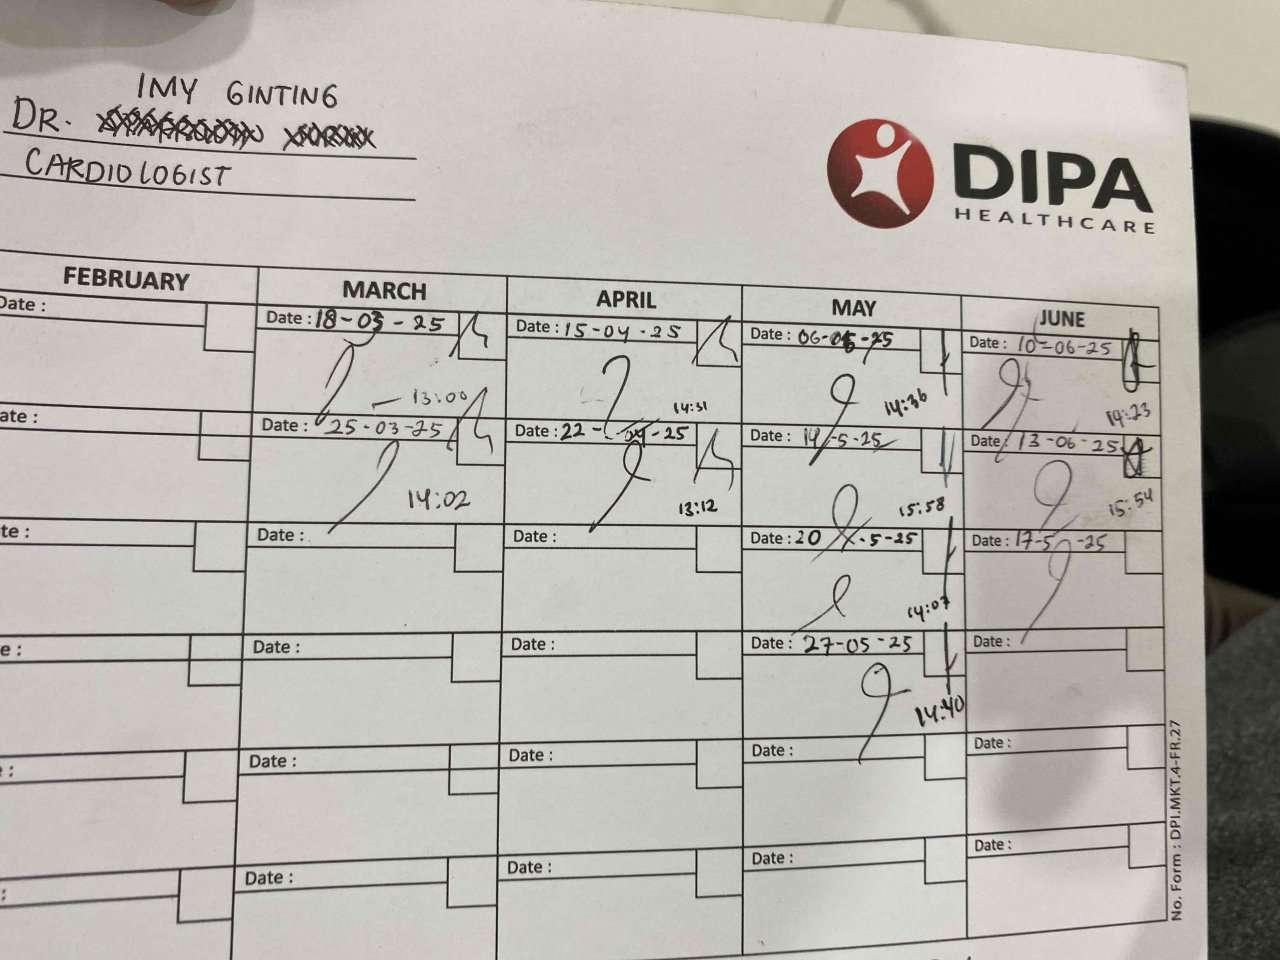 IMY GINTING
DR.
CARDIOLOGIST
DIPA
HEALTHCARE
FEBRUARY MARCH APRIL MAY JUNE
Date : Date : 18-03-25 Date : 15-04-25 Date : 06-05-25 Date : 10-06-25
13:00 14:31 14:36 14:23
ate : Date : 25-03-25 Date : 22-04-25 Date : 14-5-25 Date : 13-06-25
14:02 13:12 15:58 15:54
te : Date : Date : Date : 20-5-25 Date : 17-5-25
14:07
e : Date : Date : Date : 27-05-25 Date :
14:40
: Date : Date : Date : Date :
: Date : Date : Date : Date :
No. Form : DPI.MKT.4-FR.27